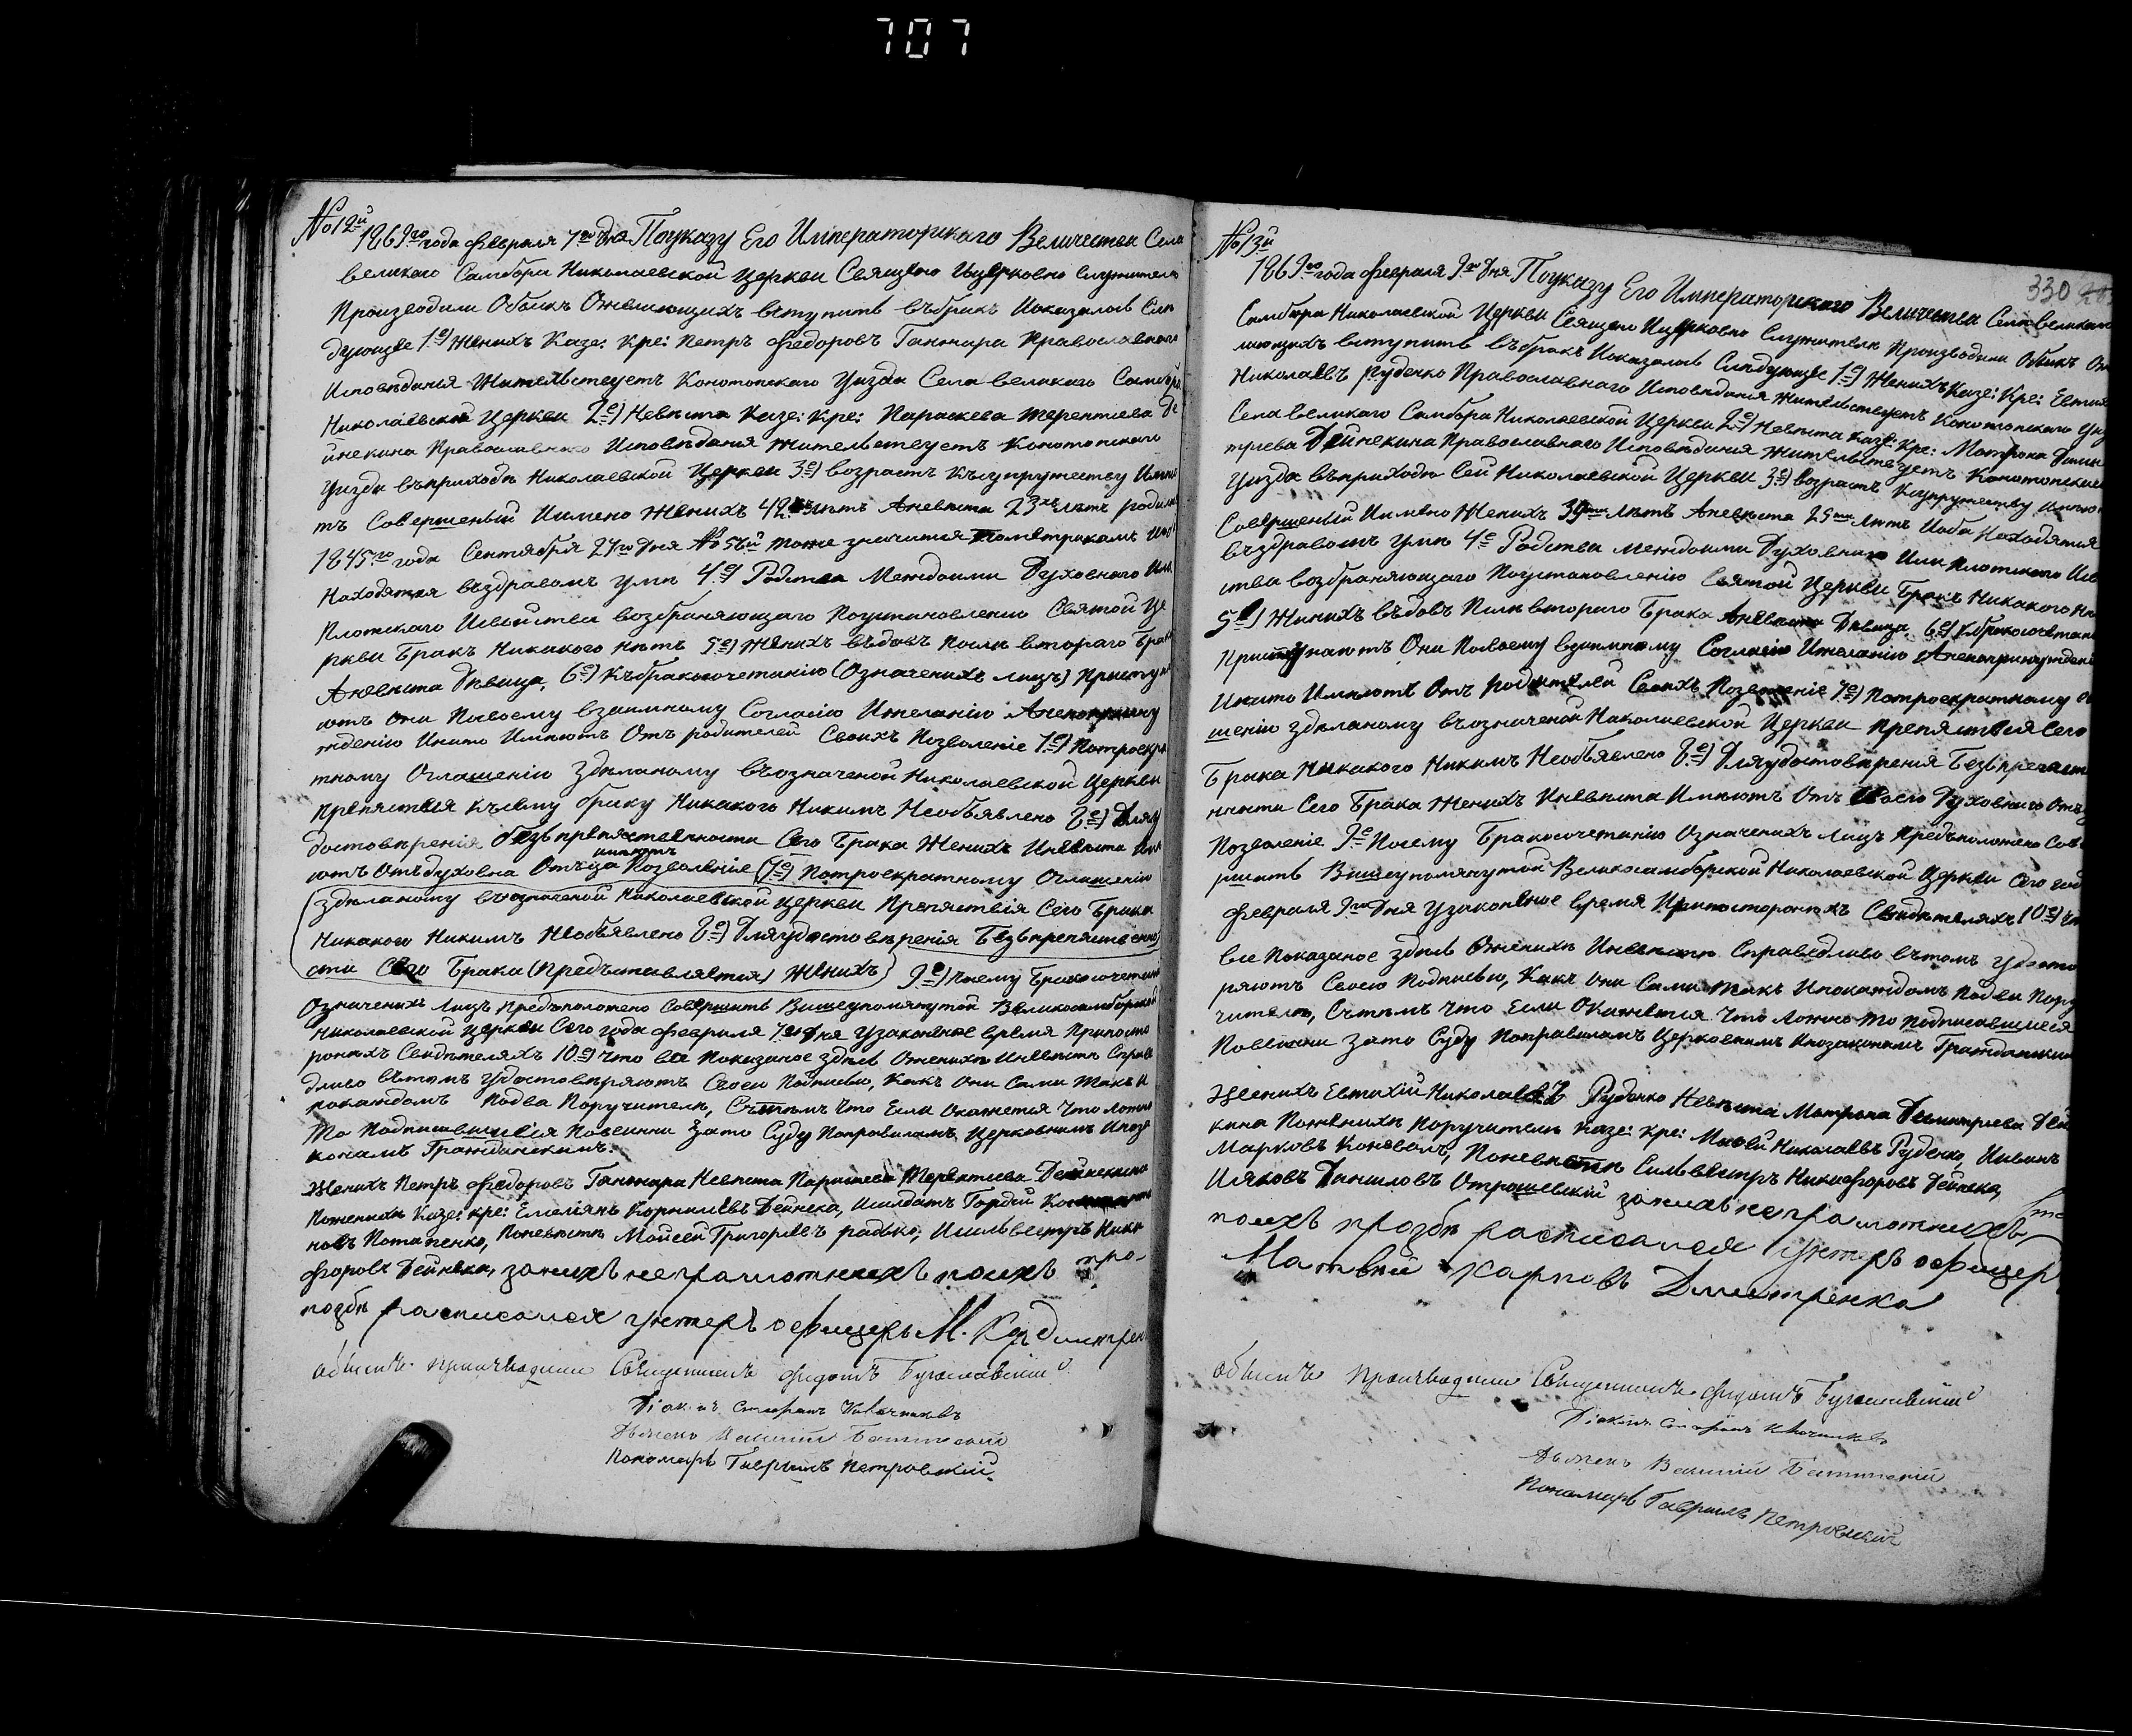 707
№12й
1869го года февраля 7го дня По указу Его Императорскаго Величества Села
великаго Самбора Николаевской Церкви Священо Ицерковно служители
Производили Обыскъ Ожелающихъ вступить въбракъ Иоказалось Слѣ
дующее 1е) Женихъ Казе: Кре: Петръ Федоровъ Ганжара Православнаго
Исповѣданія Жительствуетъ Конотопскаго Уизда Села великаго Самбора
Николаевской Церкви 2е) Невѣста Казе: Кре: Параскева Терентіева Де
йнекина Православнаго Исповѣданія жительствуетъ Конотопскаго
Уизда въприходѣ Николаевской Церкви 3е) возрастъ Късупружеству Имѣю
тъ Совершеный Иимено Женихъ 42 лѣтъ Аневѣста 23хъ лѣтъ родилась
1845го года Сентября 27го дня №56й тоже значится пометрикамъ Иоба
Находятся въздравомъ умѣ 4е) Родства Междоими Духовнаго Или
Плотскаго Исвойства возбраняющаго Поустановленію Святой Це
ркви Бракъ Никакого нѣтъ 5е) Женихъ въдовъ Послѣ втораго Брака
Аневѣста дѣвица, 6е) Къбракосочетанію (Означенихъ лицъ) Приступа
ютъ Они Посвоему взаимному Согласію Ижеланію Анепоприну
жденію Инато Имѣютъ Отъ родителей Своихъ Позволеніе 7е) Потроекра
тному Оглашенію Здѣланому въозначеной Николаевской Церкви
Препяствія Къsему браку Никакого Никимъ Необъявлено 8е) Дляу
достовѣренія безъпрепяственности Сего Брака Женихъ Иневѣста Имѣ
имѣютъ
ютъ Отъдуховна Отъца Позволеніе (7е) Потроекратному Оглашенію
здѣланому въозначеной Николаевской Церкви Препяствія Сего Брака
Никакого Никимъ Необъявлено 8е) Дляудостовѣренія Безъпрепяственно
сти Сего Брака (Предъставляется) Женихъ) 9е) Посему Бракосочетанію
Означенихъ Лицъ Предъположено Совершить Вишеупомянутой Великосамборской
Николаевской Церкви Сего года Февраля 7го дня Узаконеное время Припосто
ронихъ Свидѣтеляхъ 10е) Что все Показаное здѣсь Оженихѣ Иневѣстѣ Справе
дливо вътомъ Удостовѣряютъ Своею Подписью, Какъ Они Сами такъ И
покаждомъ Подва Поручителя, Състѣмъ Что Если Окажется Что ложно
То Подписавшиеся Повинни Зато Суду Поправиламъ Церковнимъ Ипоза
конамъ Гражданскимъ.
Женихъ Петръ Федоровъ Ганжара Невѣста Параскева Терентиева Дейнекина
Поженихѣ Казе: кре: Емеліянъ Корниліевъ Дейнека, Исолдатъ Гордѣй
новъ Потапенко, Поневѣстѣ Мойсей Григоріевъ радько, Исильвестръ Ники
форовъ Дейнека, заниxъ неграмотнихъ поихъ про-
позбѣ расписался унтеръ офицеръ М. Кар Дмитрен
обыскъ производили Священникъ Федотъ Бугославскій
Діаконъ Стефанъ Ключниковъ
Дьячекъ Василій
Пономаръ Гавріилъ Петровскій.
№13й
330
1869го года февраля 9го дня По указу Его Императорскаго Величества Села великаго
Самбора Николаевской Церкви Священо Ицерковно Служители Производили Обыскъ Оже
лающихъ вступить въбракъ Иоказалось Слѣдующее 1е) Женихъ Казе: Кре: Евтихій
Николаевъ Руденко Православнаго Исповѣданія жительствуетъ Конотопскаго Уиз
Села великаго Самбора Николаевской Церкви 2е) Невѣста Казе: Кре: Матрона Дими
тріева Дейнекина Православнаго Исповѣданія жительствуетъ Конотопскаго
Уизда въприходѣ Сей Николаевской Церкви 3е) возрастъ Ксупружеству Имѣю
Совершеный Иимено Женихъ 39 лѣтъ Аневѣста 25 лѣтъ Иоба Находятся
въздравомъ умѣ 4е Родства междоими Духовнаго Или Плотскаго Исвой
ства возбраняющаго Поустановленію Святой Церкви Бракъ Никакого нѣ
5е) Женихъ въдовъ Послѣ втораго Брака Аневѣста Дѣвица, 6е) Кбракосочетанію
Приступаютъ Они Посвоему взаимному Согласію Ижеланію Анепопринужденію
Инато Имѣютъ Отъ Родителей Своихъ Позволеніе 7е) Потроекратному О
шенію здѣланому въозначеной Николаевской Церкви Препяствія Сего
Брака Никакого Никимъ Необъявлено 8е) Дляудостовѣренія Безъпрепяст
ности Сего Брака Женихъ Иневѣста Имѣютъ Отъ Своего Духовнаго Отъ
Позволеніе 9е Посему Бракосочетанію Означенихъ Лицъ Предъположено Сов
ршить Вишеупомянутой Великосамборской Николаевской Церкви Сего год
Февраля 9го Дня Узаконеное время Припосторонихъ Свидѣтеляхъ 10е) Что
все Показаное здѣсь Оженихѣ Иневѣстѣ Справедливо вътомъ Удосто
ряютъ Своею Подписью, Какъ Они Сами такъ Ипокаждомъ Подва Пору
чителя, Състѣмъ Что Если Окажется Что Ложно То Подписавшиеся
Повинни Зато Суду Поправиламъ Церковнимъ Ипозаконамъ Гражданским
Женихъ Евтихій Николаевъ Руденко Невѣста Матрона Димитріева Дей
кина Поженихѣ Поручители Казе: кре: Николаевъ Руденко, Ииванъ
Марковъ Коновалъ, Поневѣстѣ Сильвестръ Никифоровъ Дейнека,
Ияковъ Даниловъ Отрошевскій заниxъ неграмотнихъ
поихъ прозбѣ расписался унтеръ офицеръ
Матвѣй Карповъ Дмитренко
обыскъ производили Священникъ Федотъ Бугославскій
Діаконъ Стефанъ Ключниковъ
Дьячекъ Василій
Пономаръ Гавріилъ Петровскій